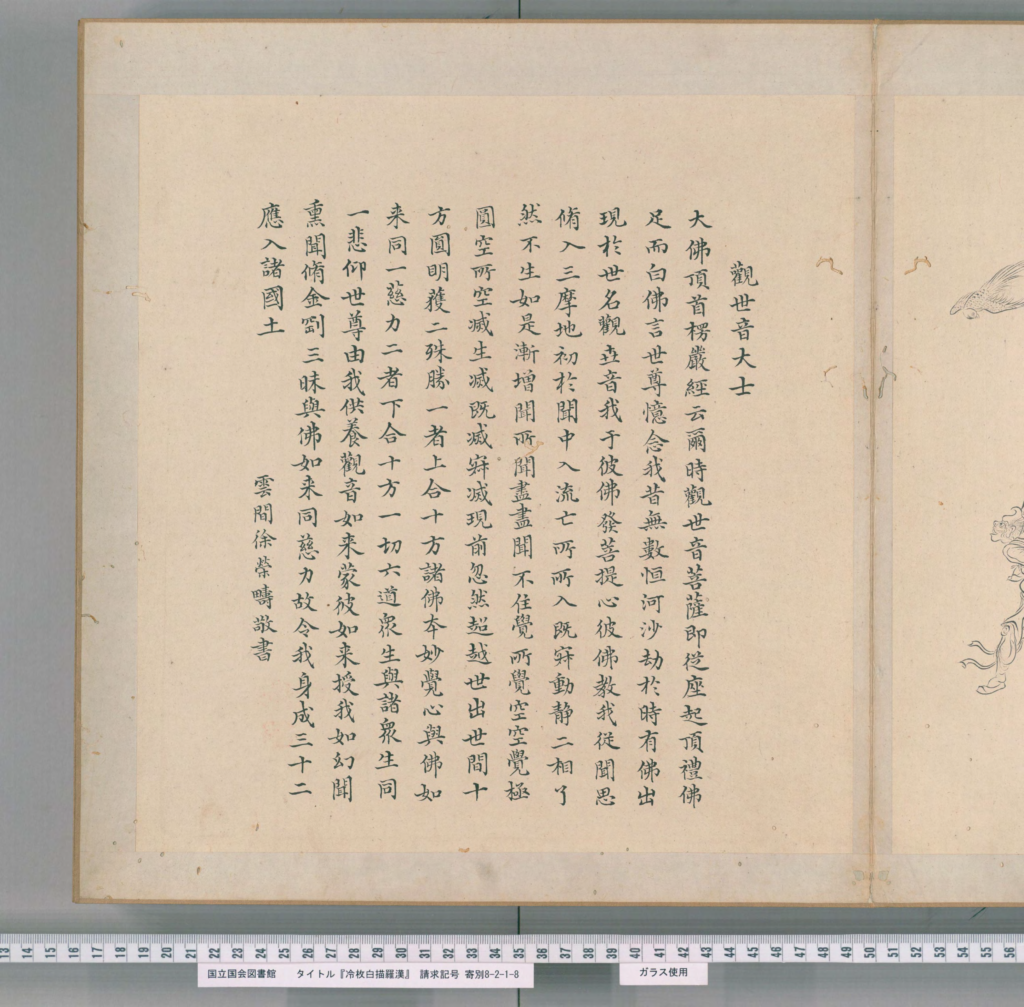 觀世音大士
大佛頂首楞嚴經云爾時觀世音菩薩即從座起頂禮佛
足而白佛言世尊憶念我昔無數恒河沙劫於時有佛出
現於世名觀世音我于彼佛發菩提心彼佛教我從聞思
脩入三摩地初於聞中入流亡所所入既寂動静二相了
然不生如是漸增聞所聞盡盡聞不住覺所覺空空覺極
圓空所空滅生滅既滅寂滅現前忽然超越世出世間十
方圓明獲二殊勝一者上合十方諸佛夲妙覺心與佛如
来同一慈力二者下合十方一切六道衆生與諸衆生同
一悲仰世尊由我供養觀音如来蒙彼如来授我如幻聞
熏聞脩金剛三昧與佛如来同慈力故令我身成三十二
應入諸國土
雲間徐榮疇敬書
13 14 15 16 17 18 19 20 21 22 23 24 25 26 27 28 29 30 31 32 33 34 35 36 37 38 39 40 41 42 43 44 45 46 47 48 49 50 51 52 53 54 55 56
国立国会図書館 タイトル『冷枚白描羅漢』 請求記号 寄別8-2-1-8
ガラス使用